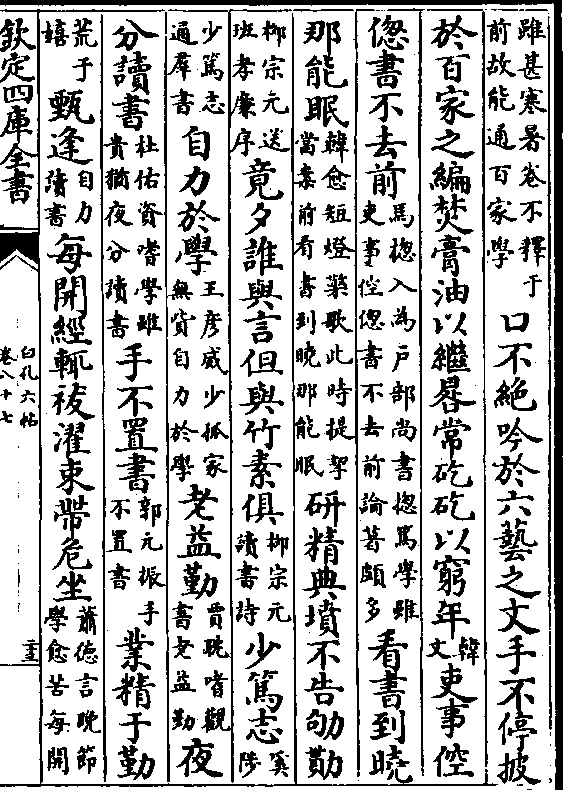 雖甚寒暑卷不釋于前故能通百家學口不絶吟於六藝之文手不停披
於百家之編焚膏油以繼晷常矻矻以窮年韓文吏事倥
偬書不去前馬揔入為戶部尚書揔篤學雖吏事倥偬書不去前論著頗多看書到曉
那能眠韓愈短燈檠歌此時提挈當案前看書到曉那能眠研精典墳不告劬勩
柳宗元送班孝廉序竟夕誰與言但與竹素俱柳宗元讀書詩少篤志奚陟
少篤志通羣書自力於學王彦威少孤家無貲自力於學老益勤賈耽嗜觀書老益勤夜
分讀書杜佑資嗜學雖貴猶夜分讀書手不置書郭元振手不置書業精于勤
荒于嬉甄逢自力讀書每開經輒祓濯束帶危坐蕭德言晚節學愈苦每開
欽定四庫全書
白孔六帖
卷八十七